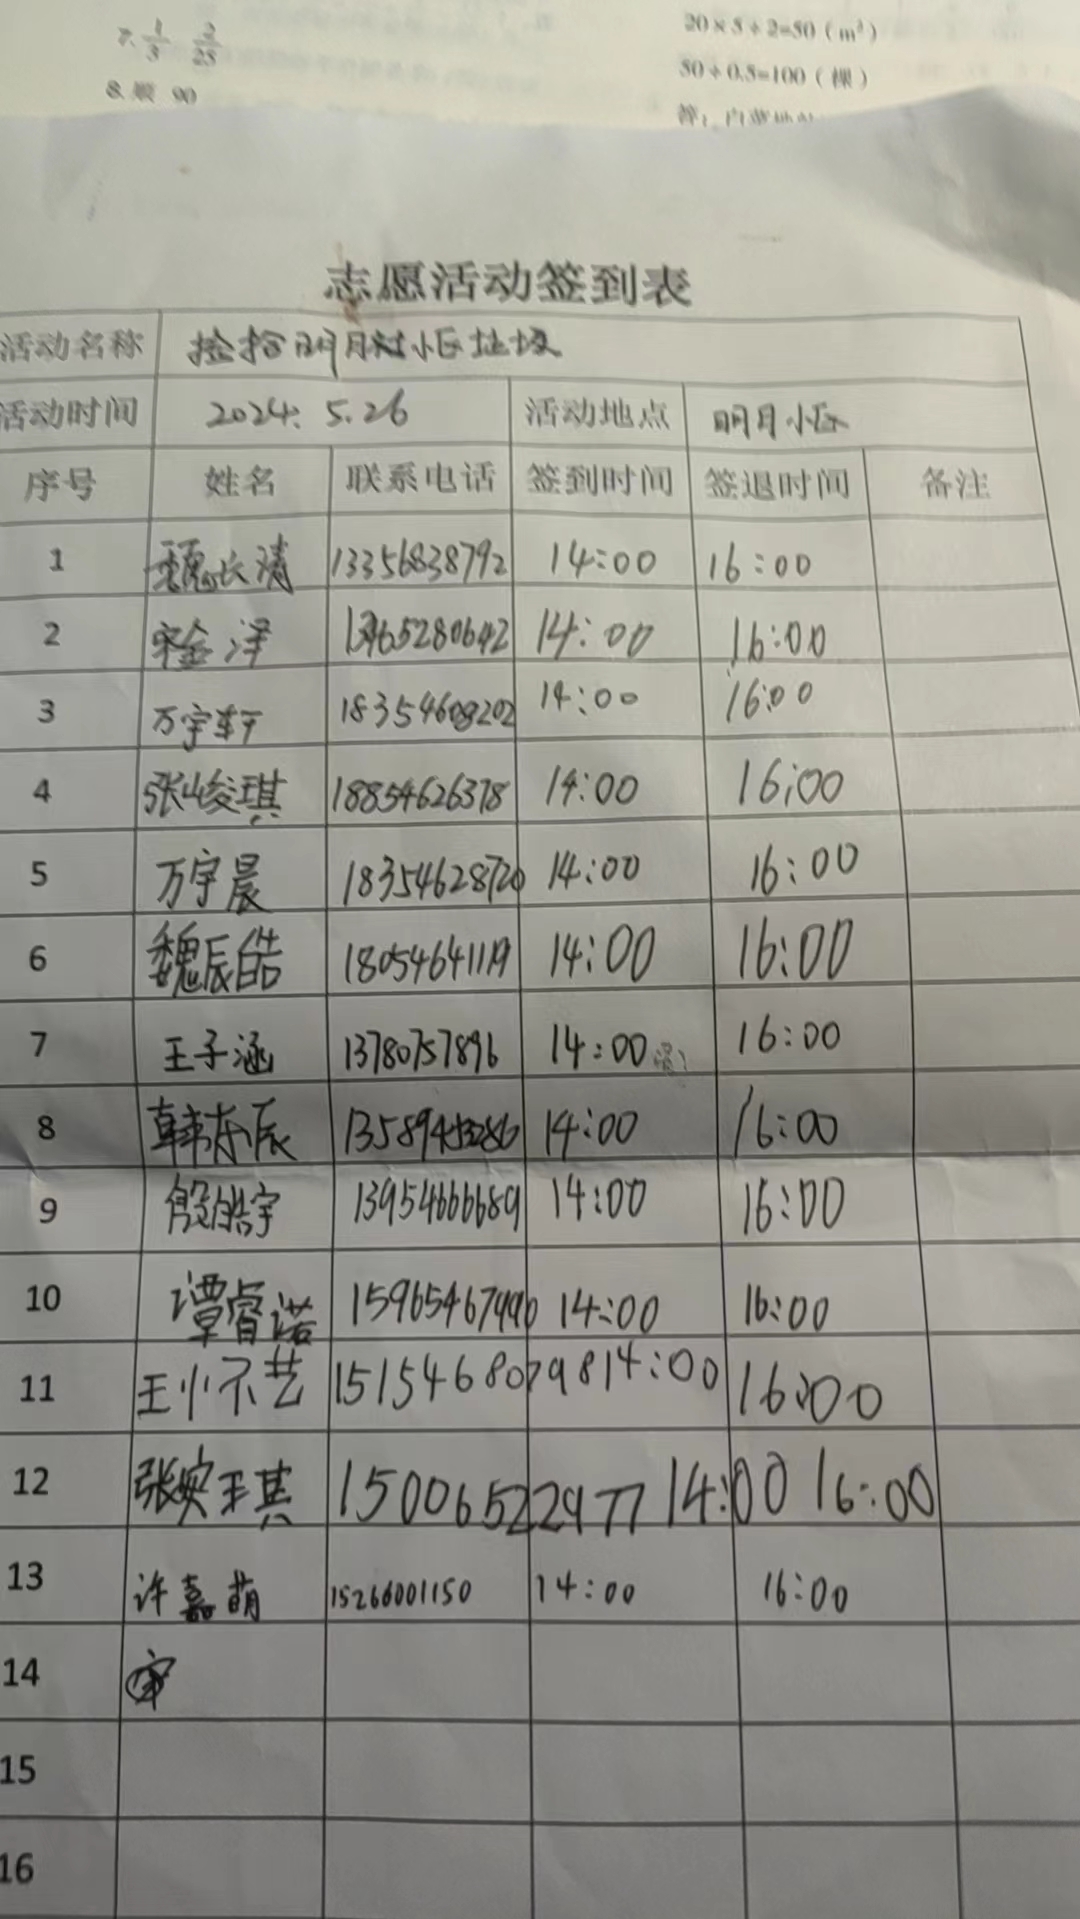 7. 1/3 2/25
20×5÷2=50（m²）
8. 顺 90
50÷0.5=100（棵）
答：白菜地
志愿活动签到表
活动名称 捡拾明月村小区垃圾
活动时间 2024. 5.26 活动地点 明月小区
序号 姓名 联系电话 签到时间 签退时间 备注
1 魏长清 13356838792 14:00 16:00
2 宋金泽 14:00 16:00
3 万宇轩 18354609202 14:00 16:00
4 张峻琪 18854626378 14:00 16:00
5 万宇晨 18354628720 14:00 16:00
6 魏辰皓 18054641119 14:00 16:00
7 王子涵 13780757896 14:00 16:00
8 韩东辰 14:00 16:00
9 殷皓宇 13954666689 14:00 16:00
10 谭睿诺 15965467990 14:00 16:00
11 王小不艺 15154680798 14:00 16:00
12 张奕琪 15006522977 14:00 16:00
13 许嘉萌 15266001150 14:00 16:00
14
15
16